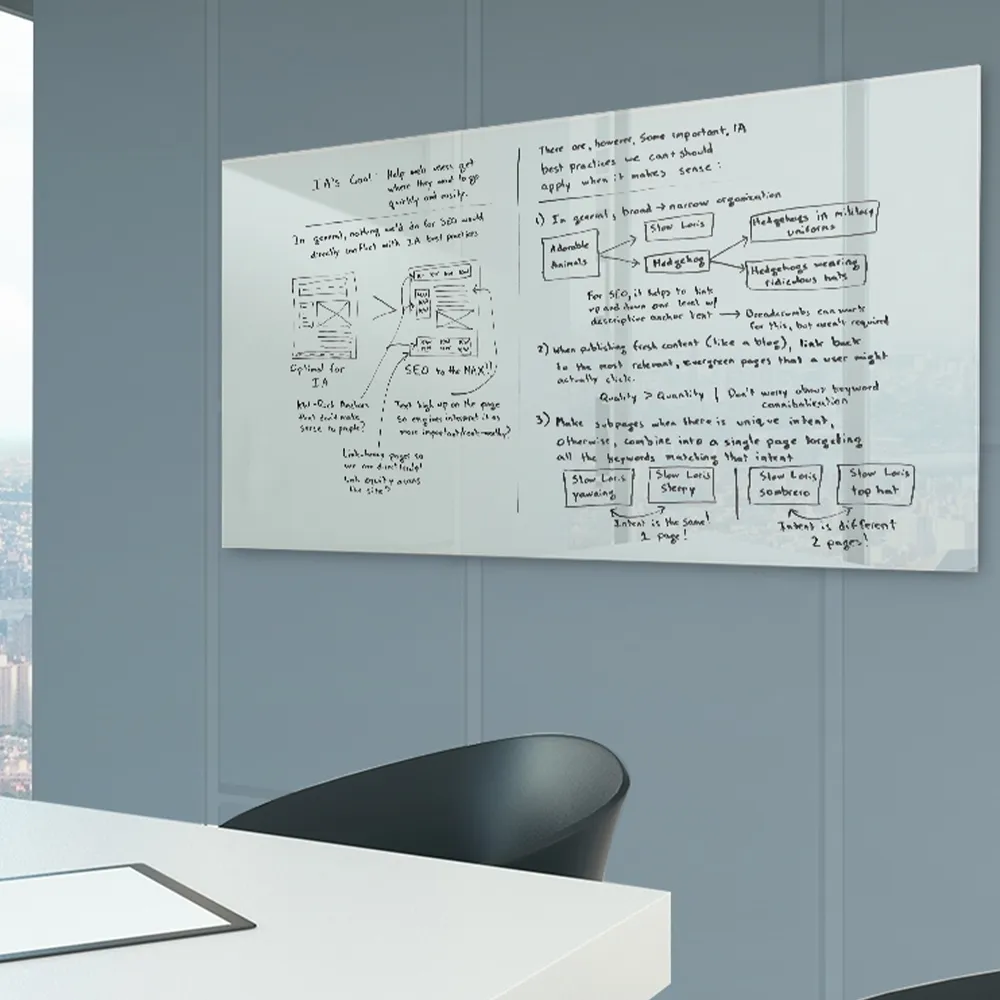 IA's Goal: Help web users get
where they want to go
quickly and easily.
In general, nothing we'd do for SEO would
directly conflict with IA best practices
KW KW KW KW
KW
KW
KW
KW KW KW KW
KW KW KW
Optimal for
IA
SEO to the MAX!!
KW-Rich Anchors
that don't make
sense to people?
Text high up on the page
so engines interpret it as
more important/rank-worthy?
Link to many pages so
we can direct
link equity across
the site?
There are, however, some important, IA
best practices we can + should
apply when it makes sense:
1) In general, broad → narrow organization
Adorable
Animals
Slow Loris
Hedgehog
Hedgehogs in military
uniforms
Hedgehogs wearing
ridiculous hats
For SEO, it helps to link
up and down one level w/
descriptive anchor text → Breadcrumbs can work
for this, but aren't required
2) When publishing fresh content (like a blog), link back
to the most relevant, evergreen pages that a user might
actually click.
Quality > Quantity | Don't worry about keyword
cannibalization
3) Make subpages when there is unique intent,
otherwise, combine into a single page targeting
all the keywords matching that intent
Slow Loris
yawning
Slow Loris
Sleepy
Slow Loris
sombrero
Slow Loris
top hat
Intent is the same!
1 page!
Intent is different
2 pages!